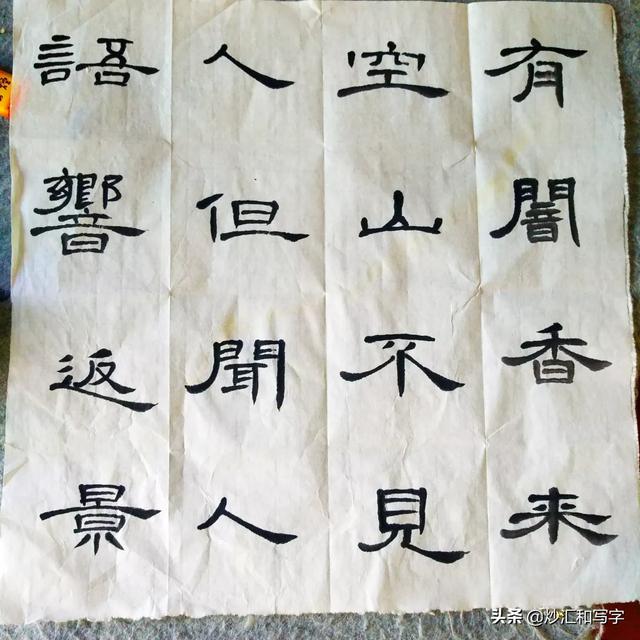 有闇香来
空山不見
人但聞人
語響返景
头条 @炒汇和写字